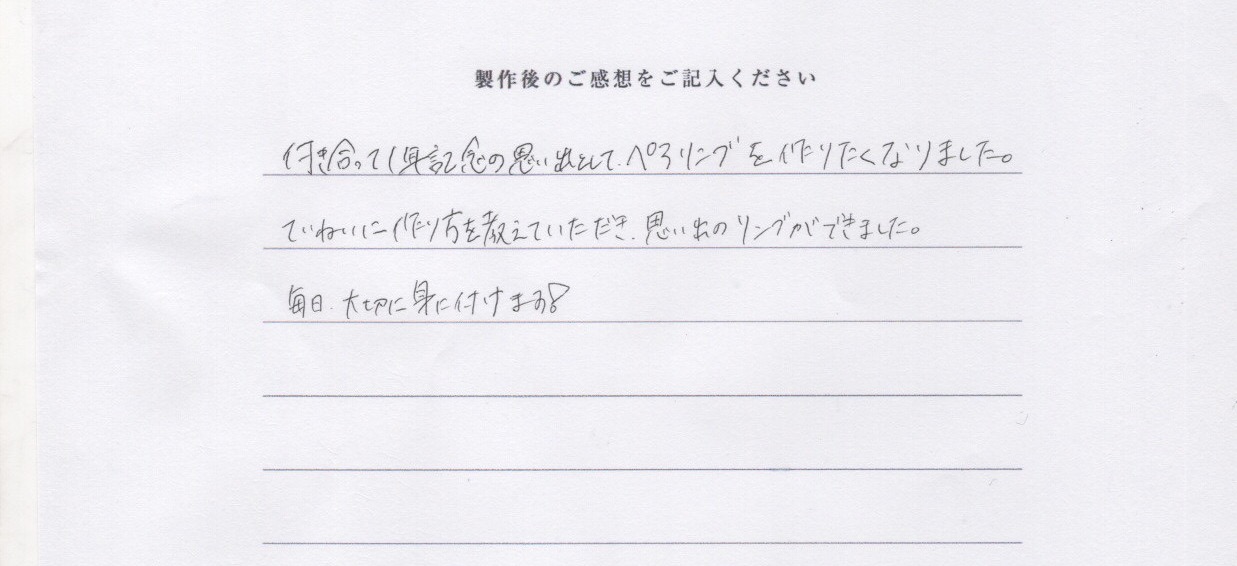 製作後のご感想をご記入ください
付き合って1年記念の思い出として、ペアリングを作りたくなりました。
ていねいに作り方を教えていただき、思い出のリングができました。
毎日、大切に身に付けます!